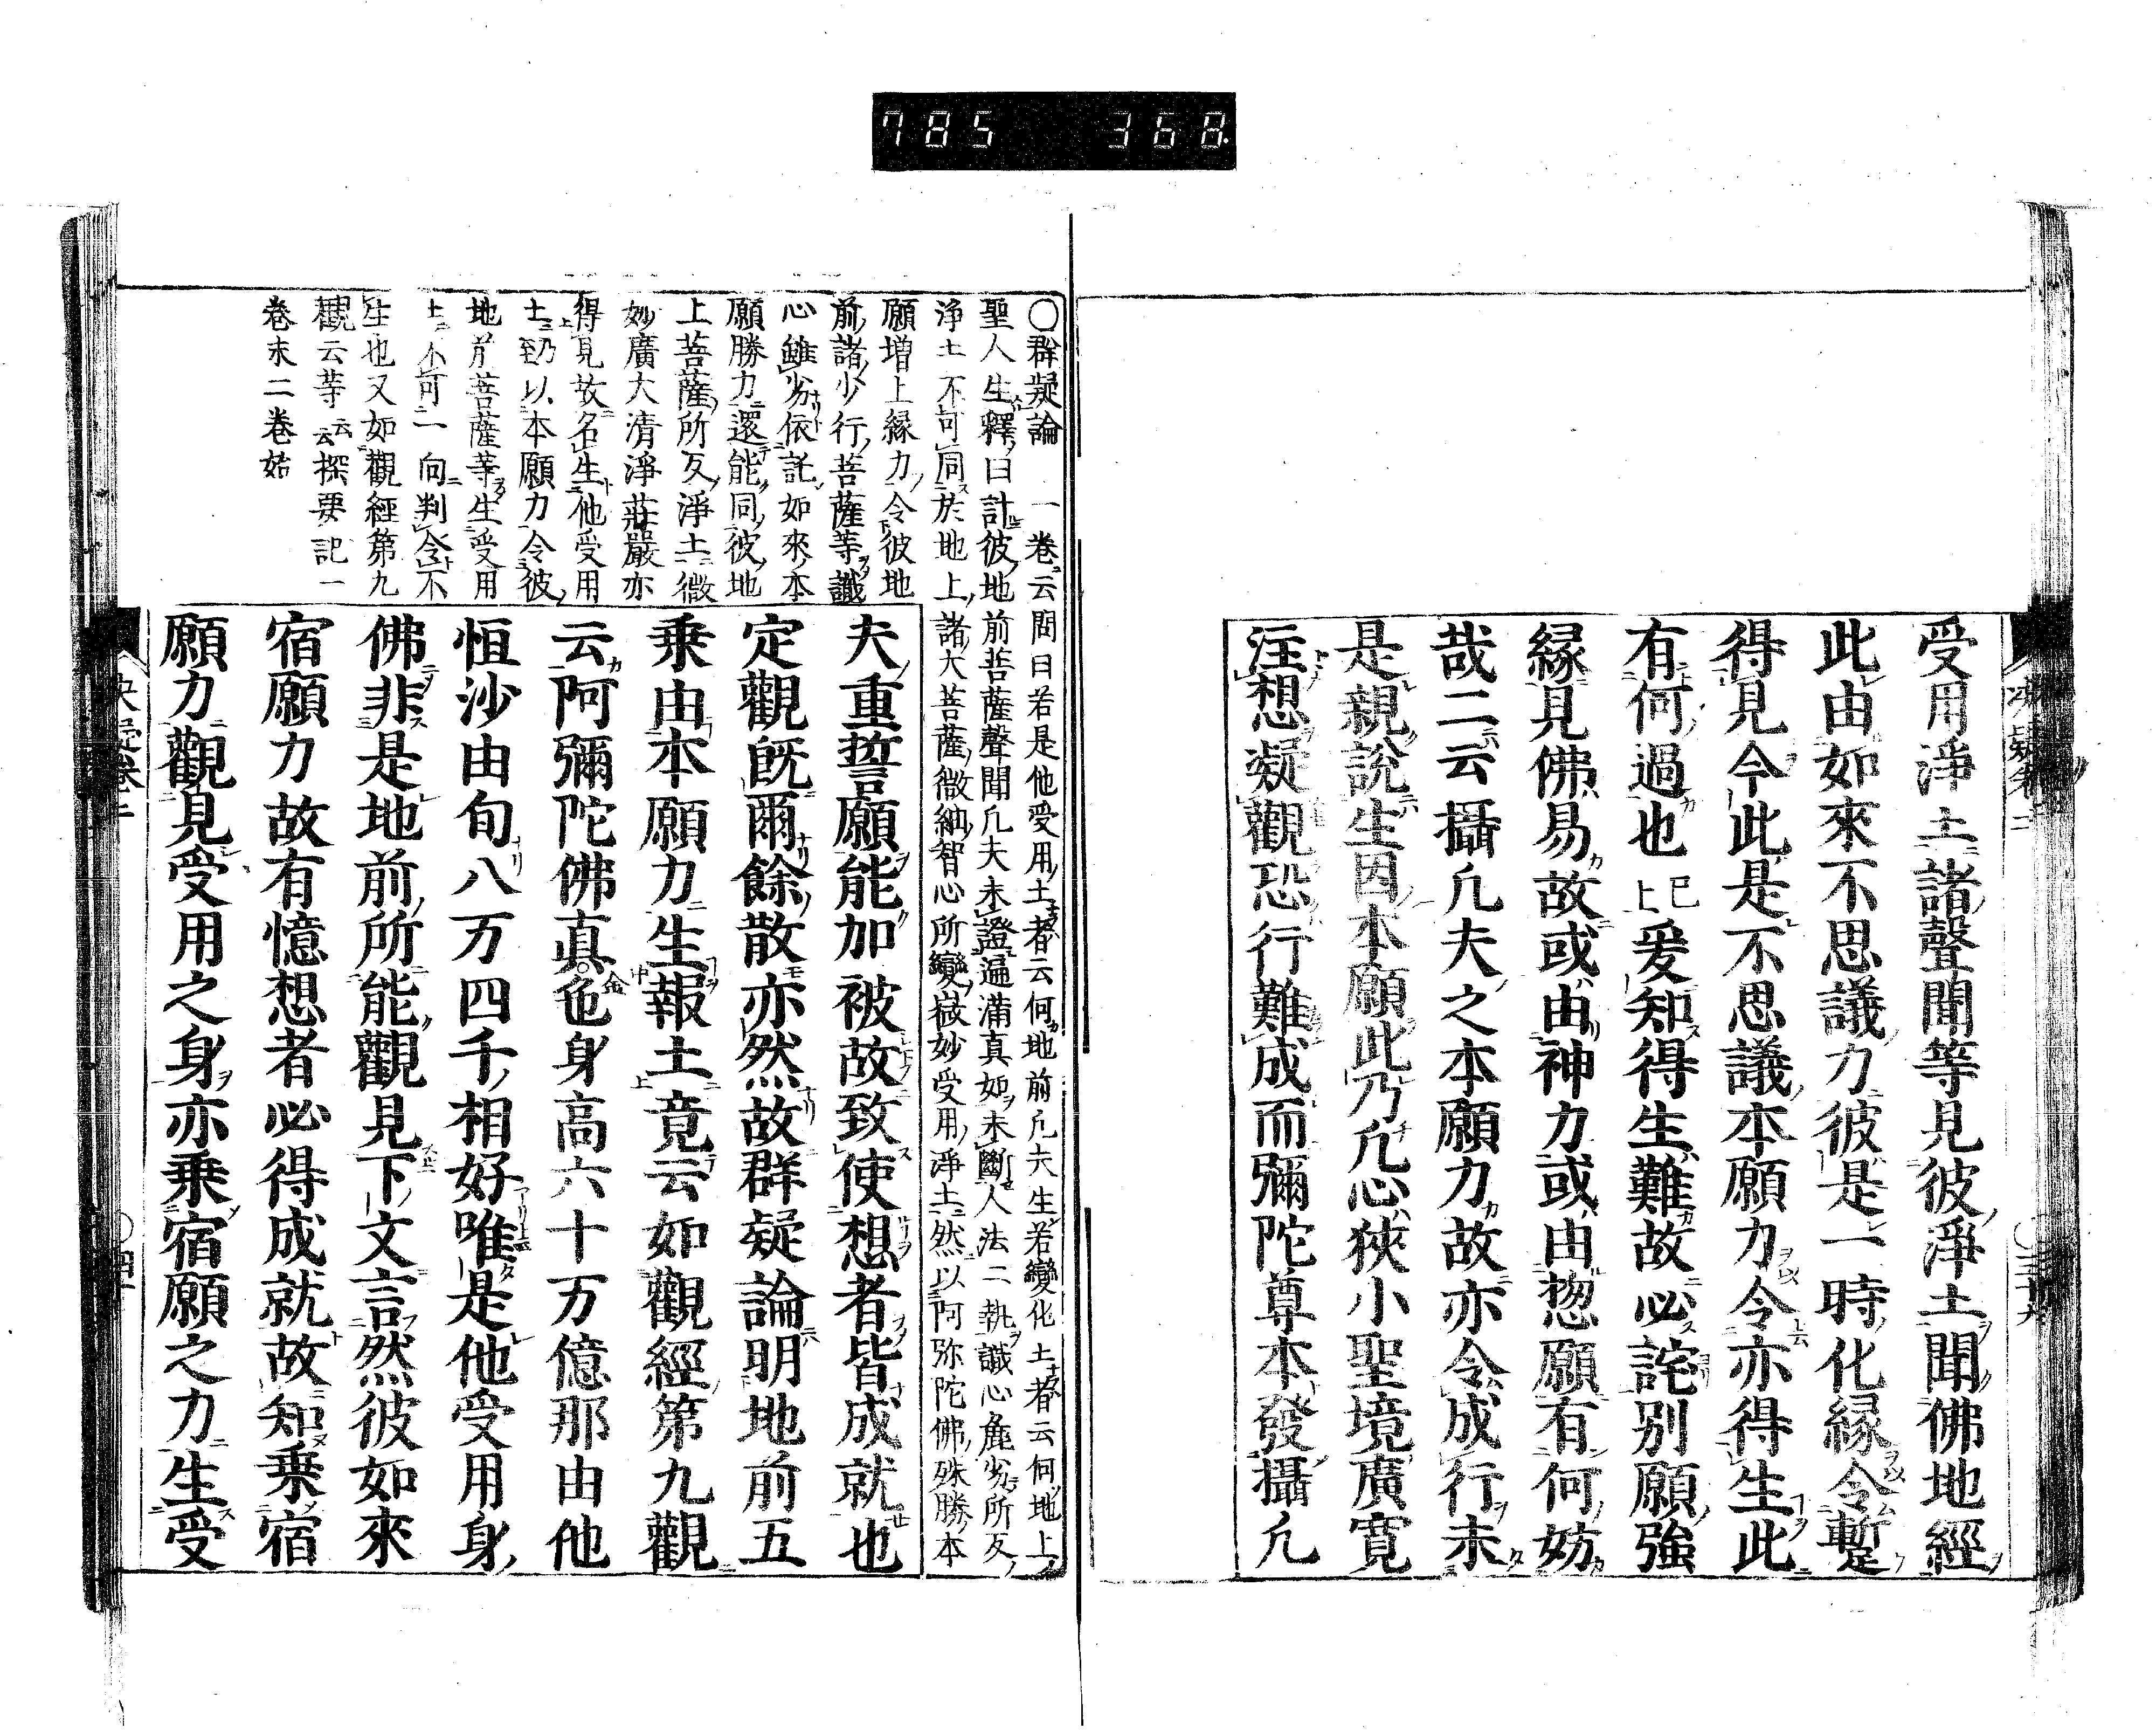 785 368
受用淨土諸聲聞等見彼淨土聞佛地經
此由如來不思議力彼是一時化緣令暫
得見今此是不思議本願力令亦得生此
有何過也已上爰知得生難故必詫別願強
緣見佛易故或由神力或由惣願有何妨
哉二云攝凡夫之本願力故亦令成行未
是親說生因本願此乃凡心狹小聖境廣寬
注想凝觀恐行難成而彌陀尊本發攝凡
〇群疑論一卷云問曰若是他受用土者云何地前凡夫生若變化土者云何地上
聖人生釋曰計彼地前菩薩聲聞凡夫未證遍滿真如未斷人法二執識心麁劣所反
淨土不可同於地上諸大菩薩微細智心所變微妙受用淨土然以阿弥陀佛殊勝本
願增上緣力令彼地
前諸少行菩薩等識
心雖劣依託如來本
願勝力還能同彼地
上菩薩所反淨土微
妙廣大清淨莊嚴亦
得見故名生他受用
土乃至以本願力令彼
地前菩薩等生受用
土不可一向判令不
生也又如觀經第九
觀云等云云探要記一
卷末二卷始
夫重誓願能加被故致使想者皆成就也
定觀既爾餘散亦然故群疑論明地前五
乘由本願力生報土竟云如觀經第九觀
云阿彌陀佛真金色身高六十万億那由他
恒沙由旬八万四千相好唯是他受用身
佛非是地前所能觀見下文言然彼如來
宿願力故有憶想者必得成就故知乘宿
願力觀見受用之身亦乘宿願之力生受